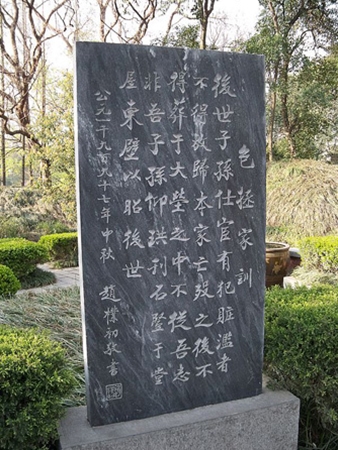 包拯家訓
後世子孫仕宦有犯贓濫者
不得放歸本家亡殁之後不
得葬于大塋之中不從吾志
非吾子孫仰珙刊石豎于堂
屋東壁以昭後世
公元一千九百九十七年中秋
趙樸初敬書